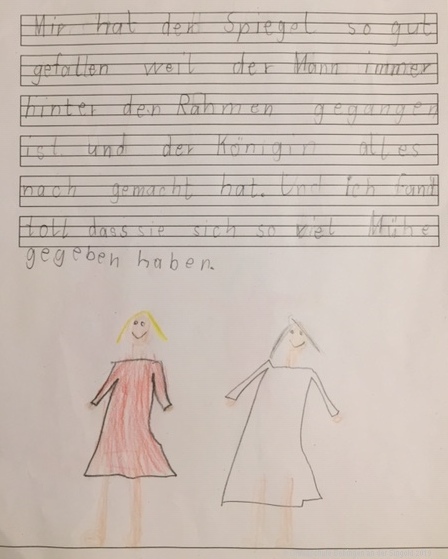 Mir hat der Spiegel so gut
gefallen weil der Mann immer
hinter den Rahmen gegangen
ist und der Königin alles
nach gemacht hat. Und ich fand
toll dass sie sich so viel Mühe
gegeben haben.